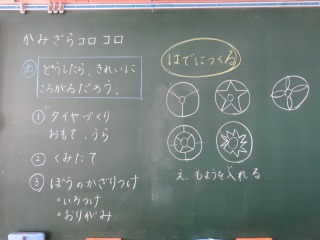 かみざらコロコロ
め どうしたら、きれいに
ころがるだろう。
① タイヤづくり
おもて、うら
② くみたて
③ ぼうのかざりつけ
・いろつけ
・おりがみ
はでにつくる
え、もようを入れる